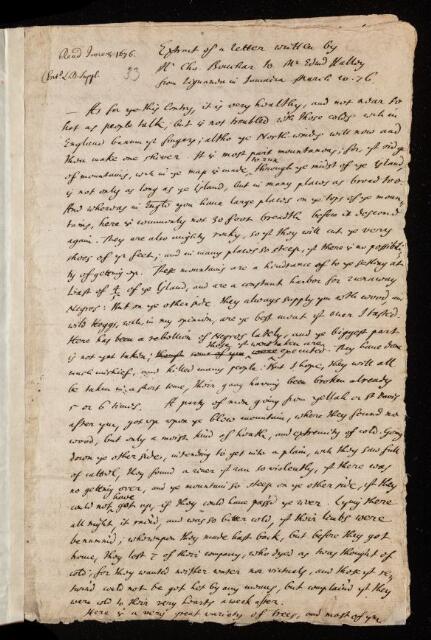 Read June 1676.
Extract of a letter written by
Mr Cha. Bouchar to Mr Edmd Halley
33
from Liguanea in Jamaica March 20. 76
— As for ye this Contry, it is very healthy, and not near so
hot as people talk, but is not troubled with those colds wch in
England benum ye fingers; altho ye North winds will now and
then make one shiver. It is most part mountainous; for ye ridge
of mountains, wch in ye map is made to run through ye midst of ye Island,
is not only as long as ye Island, but in many places as broad too.
And wheras in Engld you have large places on ye tops of ye moun-
tains, here is commonly not 30 foot breadth before it descend
again. They are also mighty rocky, so yt they will cut ye very
shoes of yr feet; and in many places so steep, yt there is no possibili-
ty of getting up. These mountains are a hindrance of ye setling at
least of of ye Island, and are a constant harbor for runaway
Negros: But on ye other side they always supply you with wood, and
wild Hoggs, wch, in my opinion, are ye best meat yt ever I tasted.
Here has been a rebellion of Negros lately, and ye biggest part
is not yet taken; those yt were taken are executed. They have done
much mischief, and killed many people: But I hope, they will all
be taken in a short time, their gang having been broken already
5 or 6 times. A party of men going from yellah or St Davis
after ym, got up upon ye Blew mountain, where they found no
wood, but only a moist kind of heath, and extremity of cold. Going
down ye other side, intending to get into a plain, wch they saw full
of cattell, they found a river yt ran so violently, yt there was
no getting over, and ye mountain so steep on ye other side, yt they
could not have got up, if they could have pass'd ye river. Lying there
all night, it rained, and was so bitter cold, yt their limbs were
benummd; whereupon they made hast back, but before they got
home, they lost 7 of their company, who dyed as twas thought of
cold; for they wanted neither water nor victuals, and those yt re-
turnd could not be got hot by any means, but complaind yt they
were cold to their very hearts a week after.
Here is a very great variety of trees, and most of ym